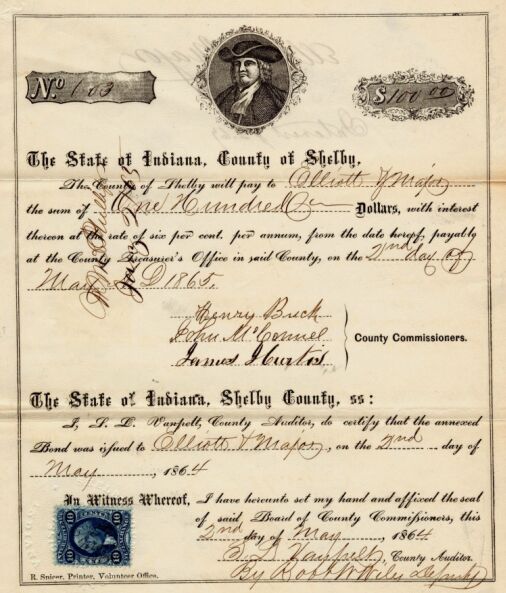 No. 103
$100.00
The State of Indiana, County of Shelby.
The County of Shelby will pay to Elliott & Major
the sum of One Hundred Dollars, with interest
thereon at the rate of six per cent. per annum, from the date hereof, payable
at the County Treasurer's Office in said County, on the 2nd day of
May A D 1865.
Henry Buck
John McConnel
James J Curtis
County Commissioners.
The State of Indiana, Shelby County, ss:
I, S. L. Vanpelt, County Auditor, do certify that the annexed
Bond was issued to Elliott & Major, on the 2nd day of
May, 1864
In Witness Whereof, I have hereunto set my hand and affixed the seal
of said Board of County Commissioners, this
2nd day of May, 1864
S. L. Vanpelt, County Auditor.
By Robt W Wiles Deputy
R. Spicer, Printer, Volunteer Office.
10 10